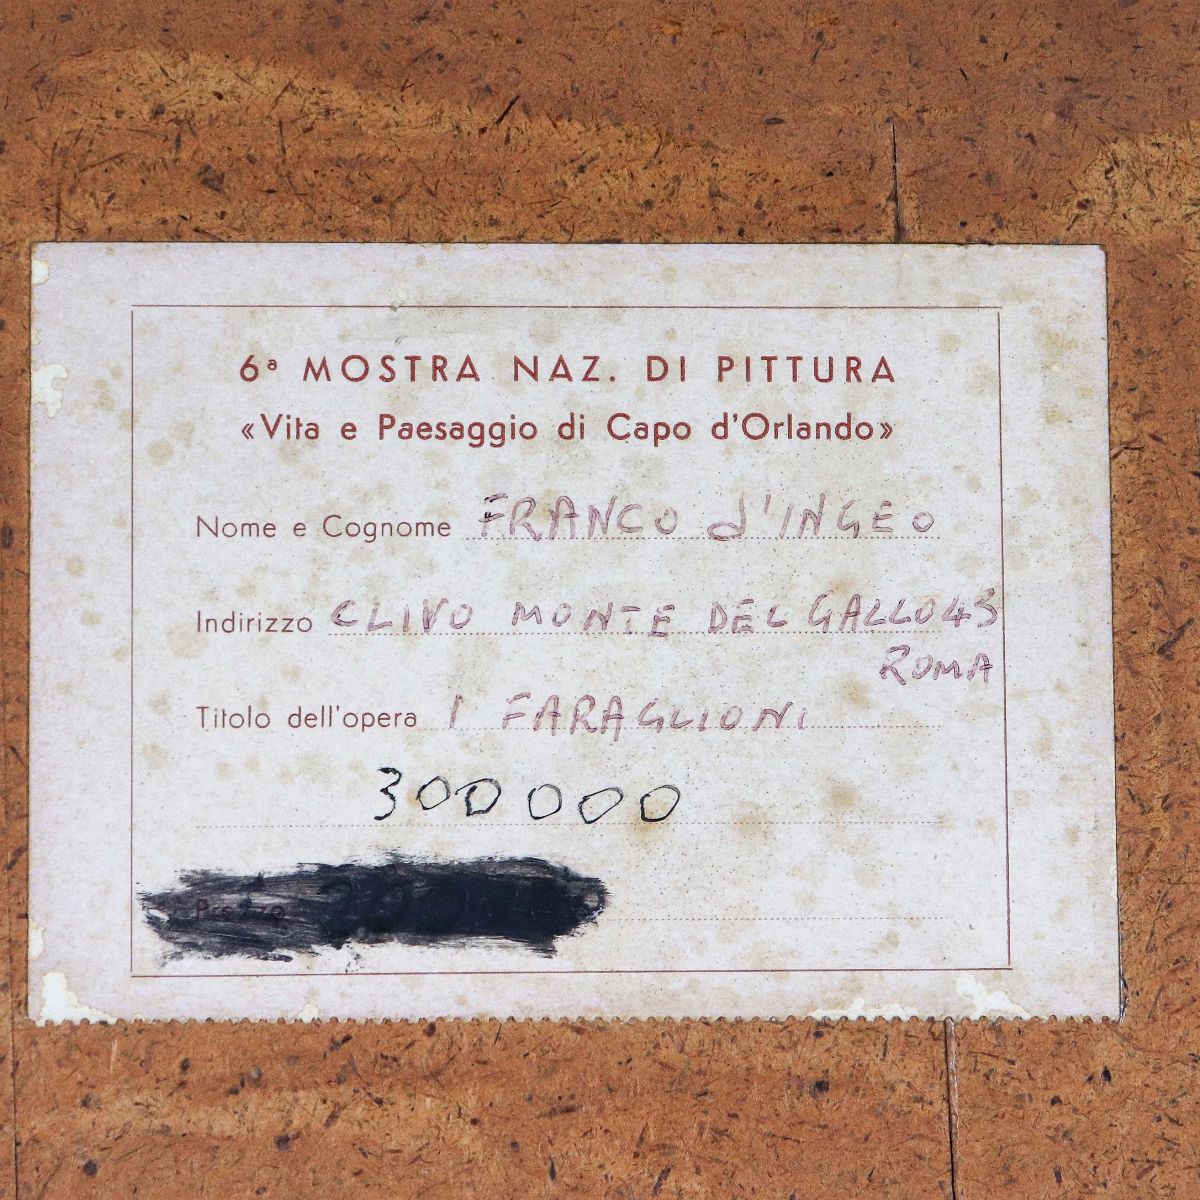 6ª MOSTRA NAZ. DI PITTURA
«Vita e Paesaggio di Capo d'Orlando»
Nome e Cognome FRANCO d'INGEO
Indirizzo CLIVO MONTE DEL GALLO 43
ROMA
Titolo dell'opera I FARAGLIONI
300000
Prezzo